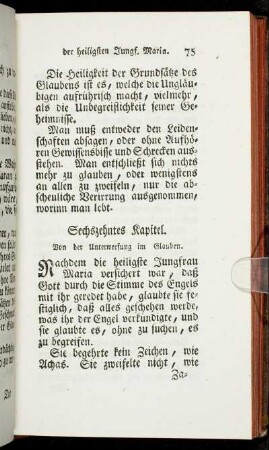 der heiligsten Jungf. Maria. 75
Die Heiligkeit der Grundsätze des
Glaubens ist es, welche die Ungläu-
bigen aufrührisch macht, vielmehr,
als die Unbegreiflichkeit seiner Ge-
heimnisse.
Man muß entweder den Leiden-
schaften absagen, oder ohne Aufhö-
ren Gewissensbisse und Schrecken aus-
stehen. Man entschließt sich nichts
mehr zu glauben, oder wenigstens
an allen zu zweifeln, nur die ab-
scheuliche Verirrung ausgenommen,
worinn man lebt.
Sechszehntes Kapitel.
Von der Unterwerfung im Glauben.
Nachdem die heiligste Jungfrau
Maria versichert war, daß
Gott durch die Stimme des Engels
mit ihr geredet habe, glaubte sie fe-
stiglich, daß alles geschehen werde,
was ihr der Engel verkündigte, und
sie glaubte es, ohne zu suchen, es
zu begreifen.
Sie begehrte kein Zeichen, wie
Achas. Sie zweifelte nicht, wie
Za-